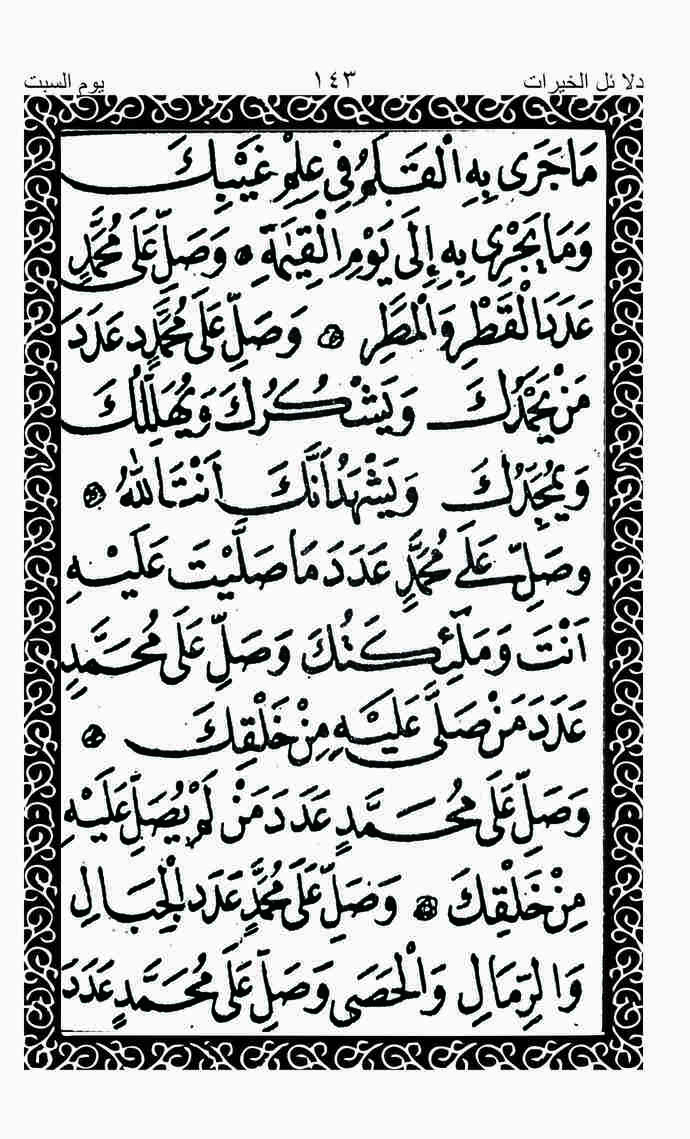 دلائل الخيرات ١٤٣ يوم السبت
مَاجَرَى بِهِ الْقَلَمُ فِي عِلْمِ غَيْبِكَ
وَمَا يَجْرِي بِهِ إِلَى يَوْمِ الْقِيٰمَةِ ۞ وَصَلِّ عَلَى مُحَمَّدٍ
عَدَدَ الْقَطْرِ وَالْمَطَرِ ۞ وَصَلِّ عَلَى مُحَمَّدٍ عَدَدَ
مَنْ يَحْمَدُكَ وَيَشْكُرُكَ وَيُهَلِّلُكَ
وَيُمَجِّدُكَ وَيَشْهَدُ أَنَّكَ أَنْتَ اللهُ ۞
وصَلِّ عَلَى مُحَمَّدٍ عَدَدَ مَا صَلَّيْتَ عَلَيْهِ
اَنْتَ وَمَلٰئِكَتُكَ وَصَلِّ عَلَى مُحَمَّدٍ
عَدَدَ مَنْ صَلَّى عَلَيْهِ مِنْ خَلْقِكَ ۞
وَصَلِّ عَلَى مُحَمَّدٍ عَدَدَ مَنْ لَمْ يُصَلِّ عَلَيْهِ
مِنْ خَلْقِكَ ۞ وَصَلِّ عَلَى مُحَمَّدٍ عَدَدَ الْجِبَالِ
وَالرِّمَالِ وَالْحَصَى وَصَلِّ عَلَى مُحَمَّدٍ عَدَدَ